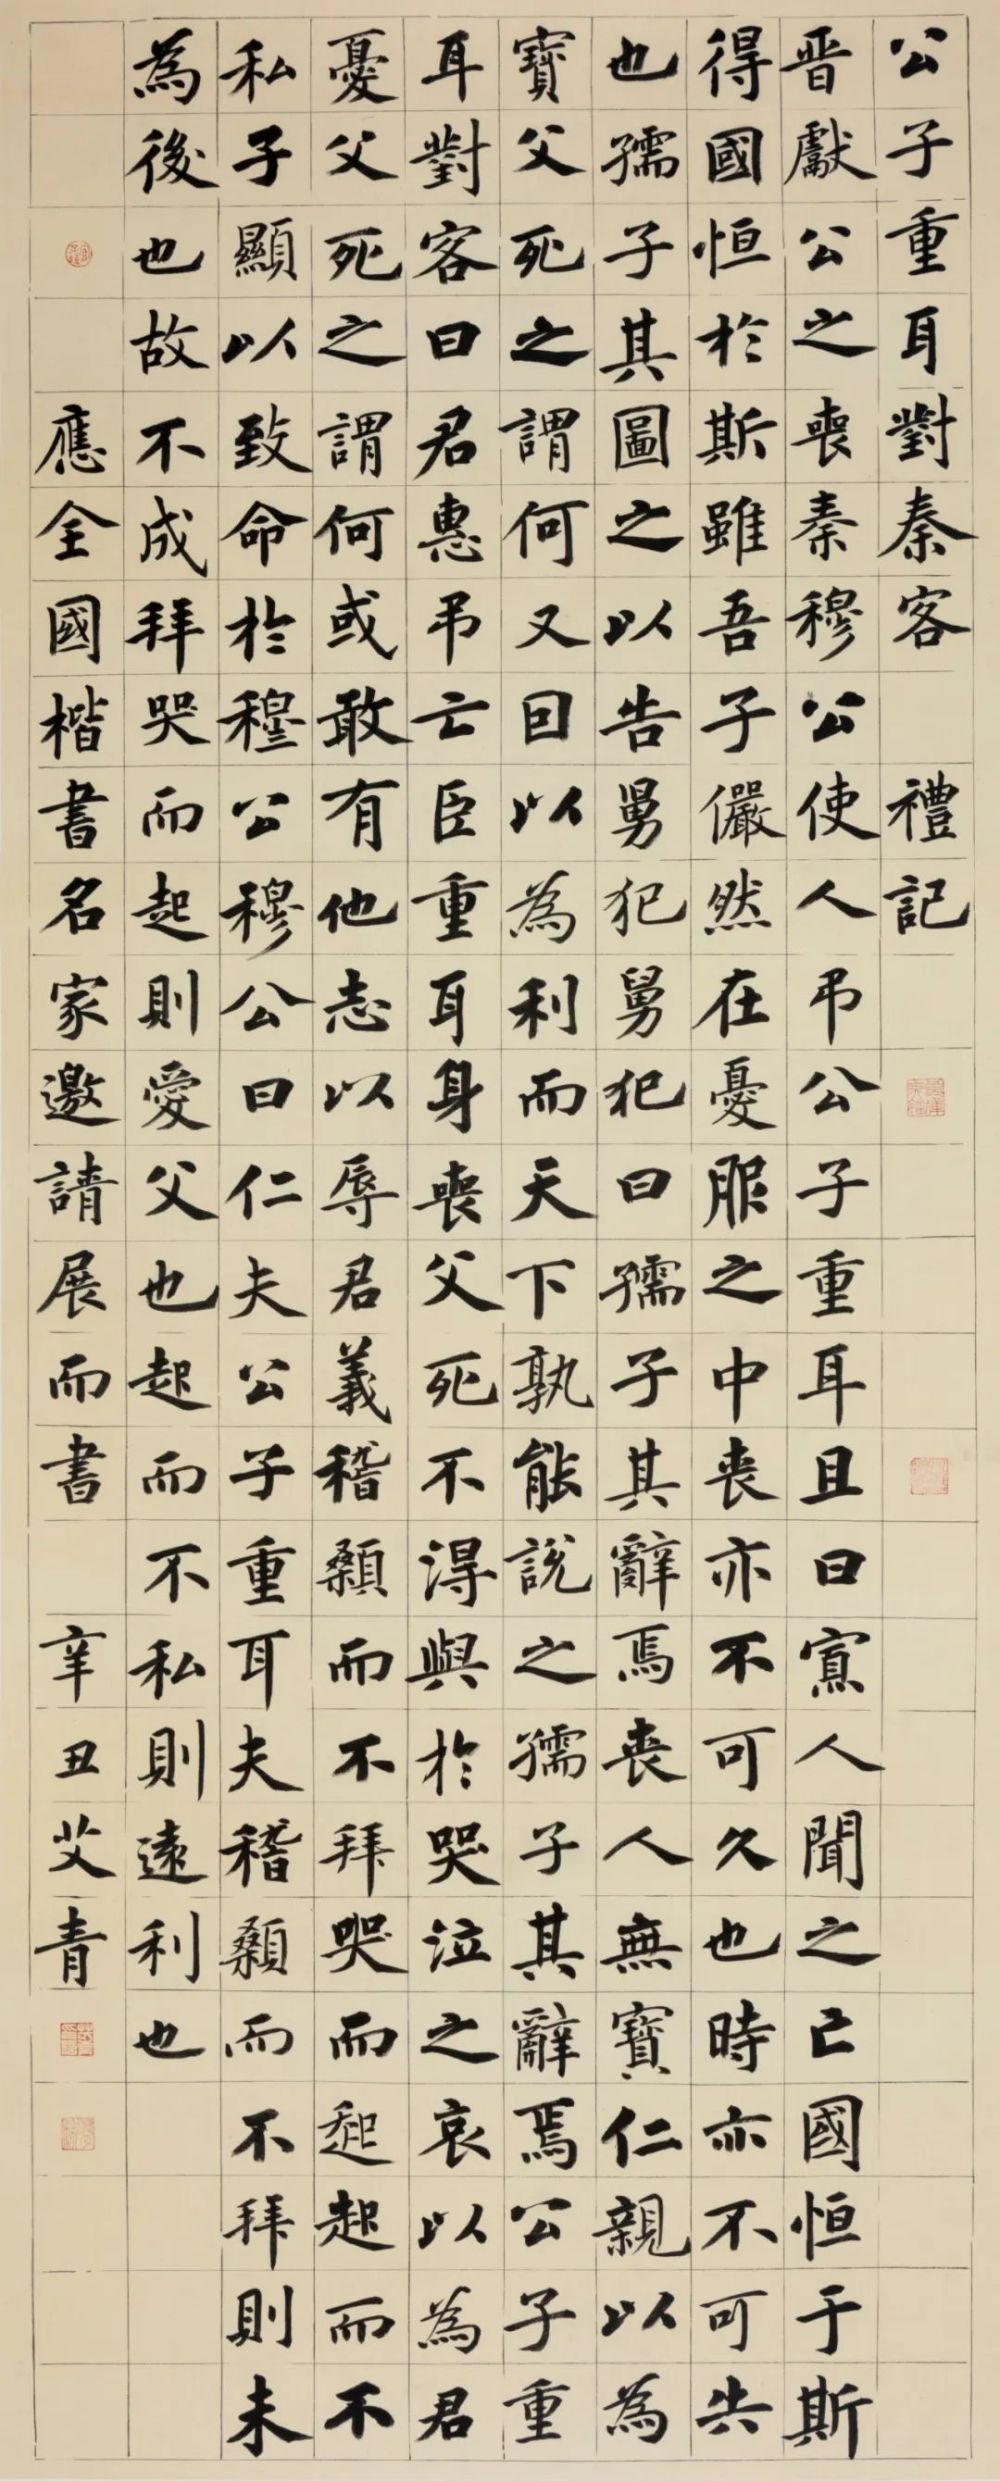 公子重耳對秦客 禮記
晋獻公之喪秦穆公使人弔公子重耳且曰寡人聞之亡國恒于斯
得國恒於斯雖吾子儼然在憂服之中喪亦不可久也時亦不可失
也孺子其圖之以告舅犯舅犯曰孺子其辭焉喪人無寶仁親以為
寶父死之謂何又因以為利而天下孰能說之孺子其辭焉公子重
耳對客曰君惠弔亡臣重耳身喪父死不得與於哭泣之哀以為君
憂父死之謂何或敢有他志以辱君義稽顙而不拜哭而起起而不
私子顯以致命於穆公穆公曰仁夫公子重耳夫稽顙而不拜則未
為後也故不成拜哭而起則愛父也起而不私則遠利也
應全國楷書名家邀請展而書 辛丑艾青